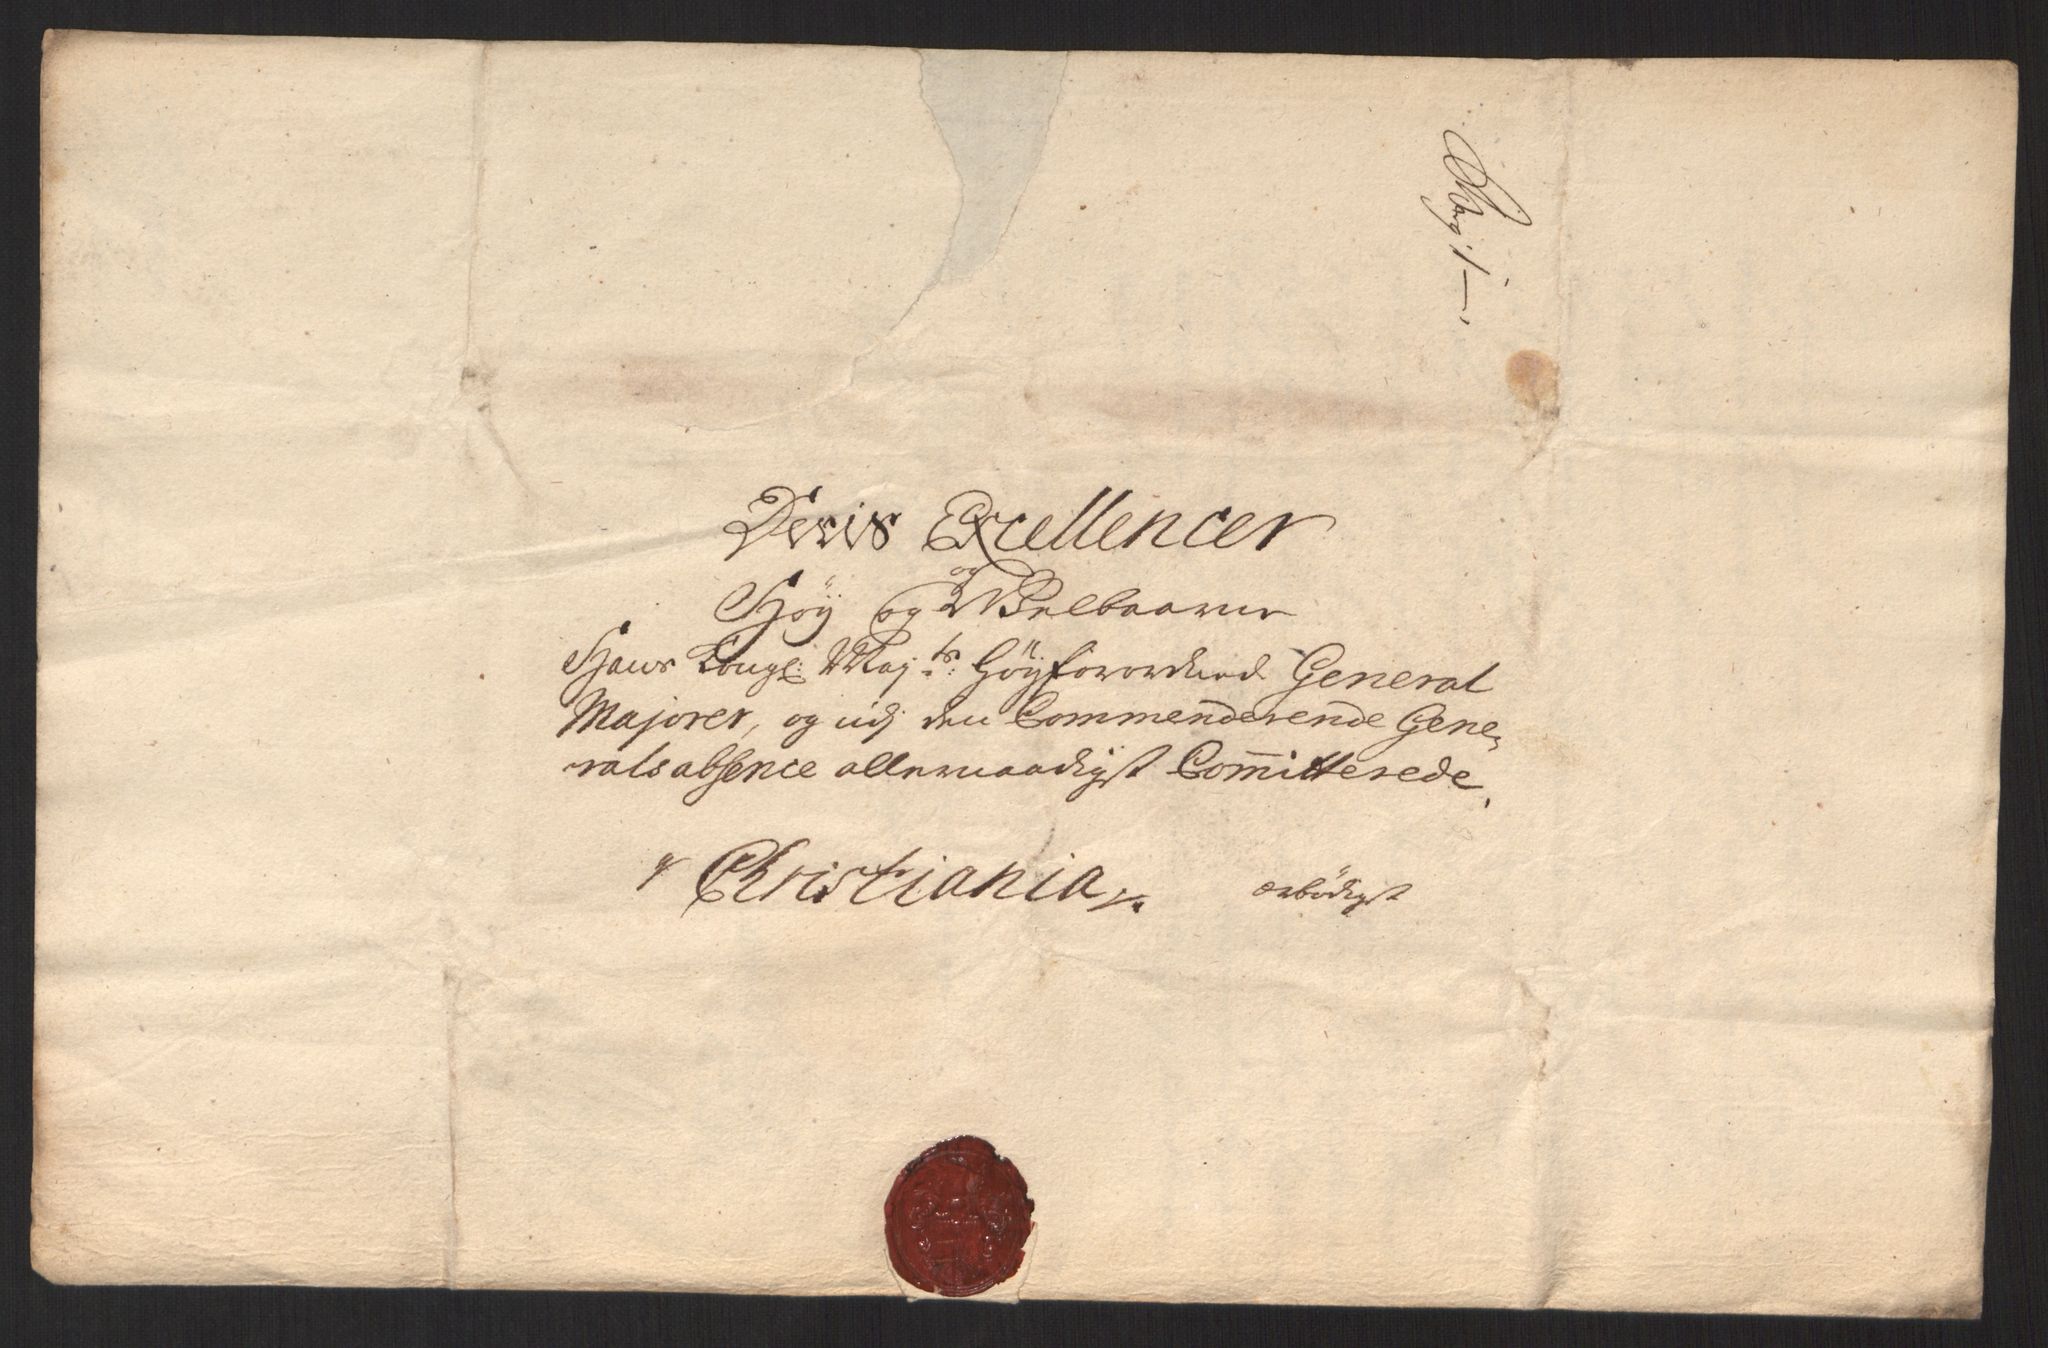 Deris Excellencer
Høy og og Welbaarne
Hans Kongl: Maj:ts Høyforordned General
Majorer, og udj den Commenderende Gene-
rals absence allernaadigst Committerede.
Christiania
ærbødigst